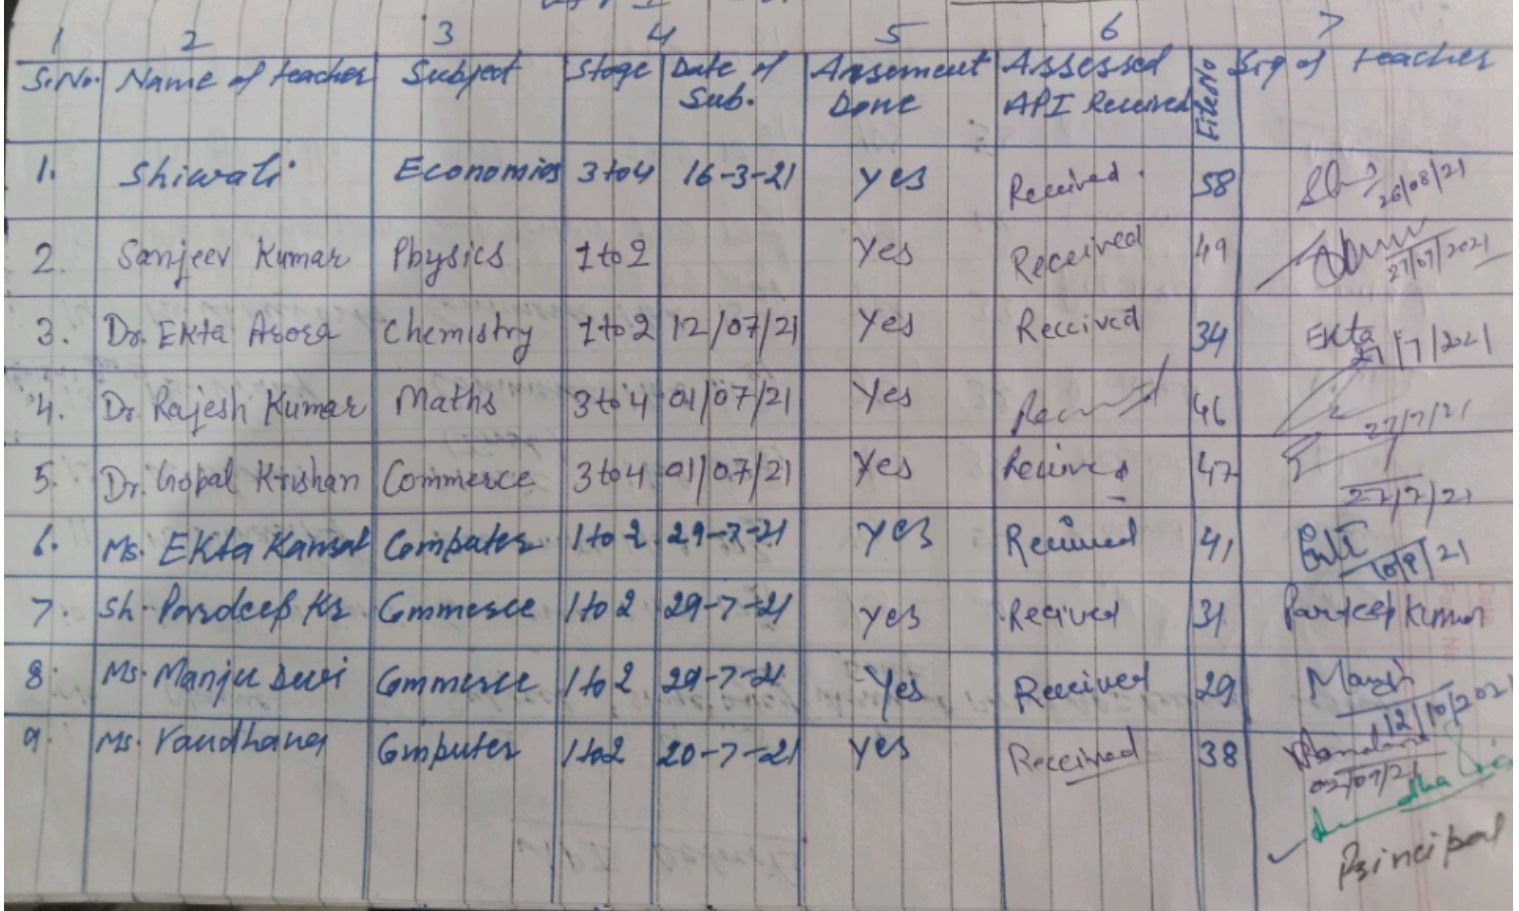 1 2 3 4 5 6 7
Sr.No. Name of teacher Subject Stage Date of Sub. Assement Done Assessed API Received File No Sig of teacher
1. Shiwali Economics 3 to 4 16-3-21 Yes Received. 58 26/08/21
2. Sanjeev Kumar Physics 1 to 2 Yes Received 49 27/07/2021
3. Dr. Ekta Arora Chemistry 1 to 2 12/07/21 Yes Received 34 Ekta 27/7/2021
4. Dr. Rajesh Kumar Maths 3 to 4 01/07/21 Yes 46 27/7/21
5. Dr. Gopal Krishan Commerce 3 to 4 01/07/21 Yes Recived 47 27/7/21
6. Ms. Ekta Kansal Computer 1 to 2 29-7-21 Yes Received 41
7. Sh. Pardeep Kr Commerce 1 to 2 29-7-21 Yes Recived 31 Pardeep Kumar
8. Ms. Manju Devi Commerce 1 to 2 29-7-21 Yes Received 29 Manju 12/10/2021
9. Ms. Vandhana Computer 1 to 2 20-7-21 Yes Received 38 Vandana
Principal